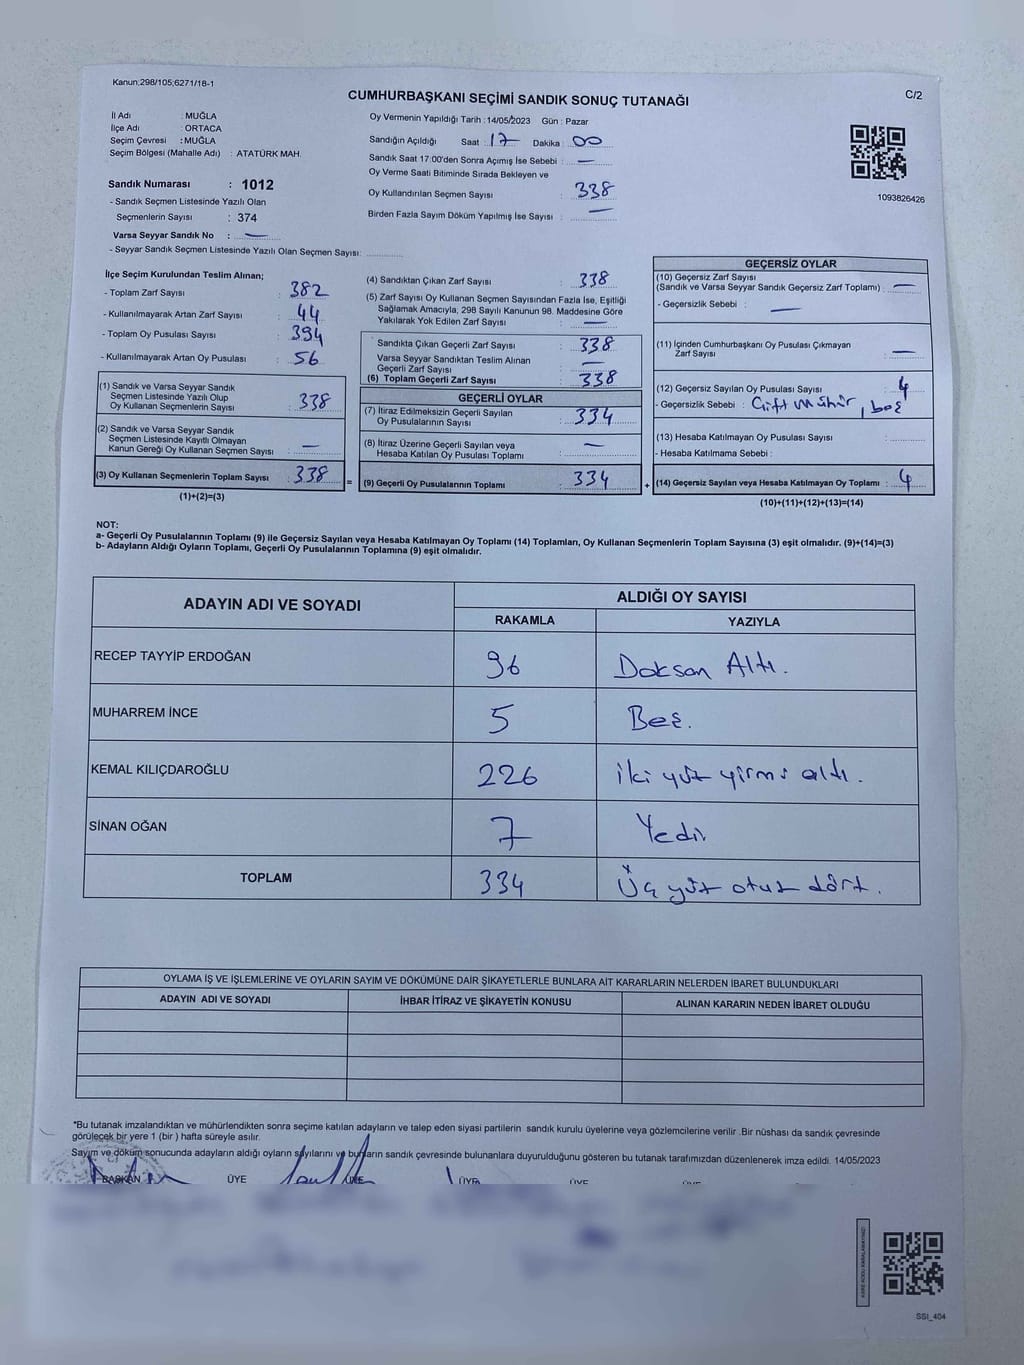 Kanun;298/105;6271/18-1
C/2
CUMHURBAŞKANI SEÇİMİ SANDIK SONUÇ TUTANAĞI
İl Adı : MUĞLA
İlçe Adı : ORTACA
Seçim Çevresi : MUĞLA
Seçim Bölgesi (Mahalle Adı) : ATATÜRK MAH.
Sandık Numarası : 1012
- Sandık Seçmen Listesinde Yazılı Olan
Seçmenlerin Sayısı : 374
Varsa Seyyar Sandık No : —
- Seyyar Sandık Seçmen Listesinde Yazılı Olan Seçmen Sayısı:
Oy Vermenin Yapıldığı Tarih : 14/05/2023 Gün : Pazar
Sandığın Açıldığı Saat : 17 Dakika : 00
Sandık Saat 17:00'den Sonra Açımış İse Sebebi : —
Oy Verme Saati Bitiminde Sırada Bekleyen ve
Oy Kullandırılan Seçmen Sayısı : 338
Birden Fazla Sayım Döküm Yapılmış İse Sayısı : —
1093826426
İlçe Seçim Kurulundan Teslim Alınan;
- Toplam Zarf Sayısı : 382
- Kullanılmayarak Artan Zarf Sayısı : 44
- Toplam Oy Pusulası Sayısı : 394
- Kullanılmayarak Artan Oy Pusulası : 56
(1) Sandık ve Varsa Seyyar Sandık
Seçmen Listesinde Yazılı Olup
Oy Kullanan Seçmenlerin Sayısı : 338
(2) Sandık ve Varsa Seyyar Sandık
Seçmen Listesinde Kayıtlı Olmayan
Kanun Gereği Oy Kullanan Seçmen Sayısı : —
(3) Oy Kullanan Seçmenlerin Toplam Sayısı : 338
(1)+(2)=(3)
=
(4) Sandıktan Çıkan Zarf Sayısı : 338
(5) Zarf Sayısı Oy Kullanan Seçmen Sayısından Fazla İse, Eşitliği
Sağlamak Amacıyla; 298 Sayılı Kanunun 98. Maddesine Göre
Yakılarak Yok Edilen Zarf Sayısı : —
Sandıkta Çıkan Geçerli Zarf Sayısı : 338
Varsa Seyyar Sandıktan Teslim Alınan
Geçerli Zarf Sayısı : —
(6) Toplam Geçerli Zarf Sayısı : 338
GEÇERLİ OYLAR
(7) İtiraz Edilmeksizin Geçerli Sayılan
Oy Pusulalarının Sayısı : 334
(8) İtiraz Üzerine Geçerli Sayılan veya
Hesaba Katılan Oy Pusulası Toplamı : —
(9) Geçerli Oy Pusulalarının Toplamı : 334
+
GEÇERSİZ OYLAR
(10) Geçersiz Zarf Sayısı
(Sandık ve Varsa Seyyar Sandık Geçersiz Zarf Toplamı) : —
- Geçersizlik Sebebi : —
(11) İçinden Cumhurbaşkanı Oy Pusulası Çıkmayan
Zarf Sayısı : —
(12) Geçersiz Sayılan Oy Pusulası Sayısı : 4
- Geçersizlik Sebebi : Çift mühür, boş
(13) Hesaba Katılmayan Oy Pusulası Sayısı :
- Hesaba Katılmama Sebebi :
(14) Geçersiz Sayılan veya Hesaba Katılmayan Oy Toplamı : 4
(10)+(11)+(12)+(13)=(14)
NOT:
a- Geçerli Oy Pusulalarının Toplamı (9) ile Geçersiz Sayılan veya Hesaba Katılmayan Oy Toplamı (14) Toplamları, Oy Kullanan Seçmenlerin Toplam Sayısına (3) eşit olmalıdır. (9)+(14)=(3)
b- Adayların Aldığı Oyların Toplamı, Geçerli Oy Pusulalarının Toplamına (9) eşit olmalıdır.
ADAYIN ADI VE SOYADI
ALDIĞI OY SAYISI
RAKAMLA YAZIYLA
RECEP TAYYİP ERDOĞAN 96 Doksan Altı.
MUHARREM İNCE 5 Beş.
KEMAL KILIÇDAROĞLU 226 iki yüz yirmi altı.
SİNAN OĞAN 7 Yedi
TOPLAM 334 Üç yüz otuz dört.
OYLAMA İŞ VE İŞLEMLERİNE VE OYLARIN SAYIM VE DÖKÜMÜNE DAİR ŞİKAYETLERLE BUNLARA AİT KARARLARIN NELERDEN İBARET BULUNDUKLARI
ADAYIN ADI VE SOYADI İHBAR İTİRAZ VE ŞİKAYETİN KONUSU ALINAN KARARIN NEDEN İBARET OLDUĞU
*Bu tutanak imzalandıktan ve mühürlendikten sonra seçime katılan adayların ve talep eden siyasi partilerin sandık kurulu üyelerine veya gözlemcilerine verilir .Bir nüshası da sandık çevresinde
görülecek bir yere 1 (bir ) hafta süreyle asılır.
Sayım ve döküm sonucunda adayların aldığı oyların sayılarını ve bunların sandık çevresinde bulunanlara duyurulduğunu gösteren bu tutanak tarafımızdan düzenlenerek imza edildi. 14/05/2023
BAŞKAN ÜYE ÜYE ÜYE ÜYE
SSI_404